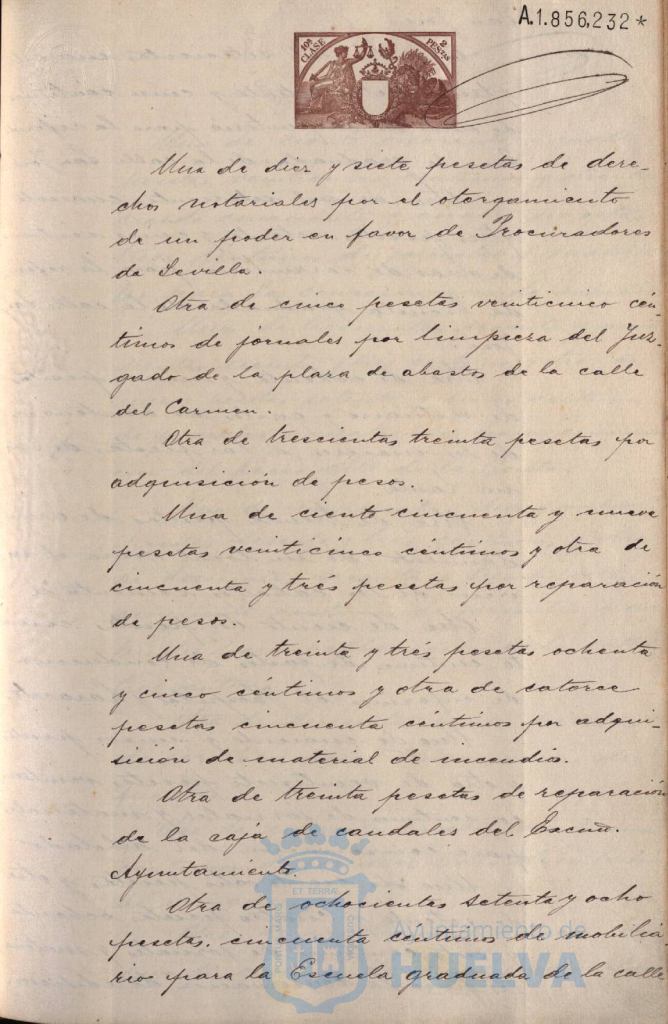 A.1.856,232*
10ª CLASE
2 PESETAS
Una de diez y siete pesetas de dere-
chos notariales por el otorgamiento
de un poder en favor de Procuradores
de Sevilla.
Otra de cinco pesetas veinticinco cén-
timos de jornales por limpieza del Juz-
gado de la plaza de abastos de la calle
del Carmen.
Otra de trescientas treinta pesetas por
adquisición de pesos.
Una de ciento cincuenta y nueve
pesetas veinticinco céntimos y otra de
cincuenta y trés pesetas por reparación
de pesos.
Una de treinta y trés pesetas ochenta
y cinco céntimos y otra de catorce
pesetas cincuenta céntimos por adqui-
sición de material de incendios.
Otra de treinta pesetas de reparación
de la caja de caudales del Excmo.
Ayuntamiento.
Otra de ochocientas setenta y ocho
pesetas. cincuenta centimos de mobilia-
rio para la Escuela graduada de la calle
ET TERRA
Ayuntamiento de
HUELVA